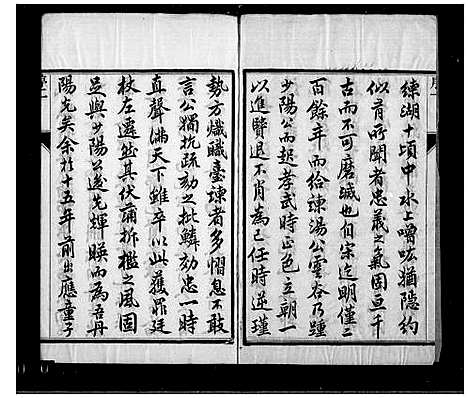 練湖十頃中水上噌吰猶隱約
似有所聞者忠義之氣固亙千
古而不可磨滅也自宋迄明僅二
百餘年而給諫湯公雲谷乃踵
少陽公而起孝武時正色立朝一
以進賢退不肖為己任時逆瑾
勢方熾臺諫者多慴息不敢
言公獨抗疏劾之批鱗劾忠一時
直聲滿天下雖卒以此獲罪廷
杖左遷然其伏蒲折檻之風固
足與少陽公後先輝暎而為吾丹
陽光矣余於十五年前出應童子